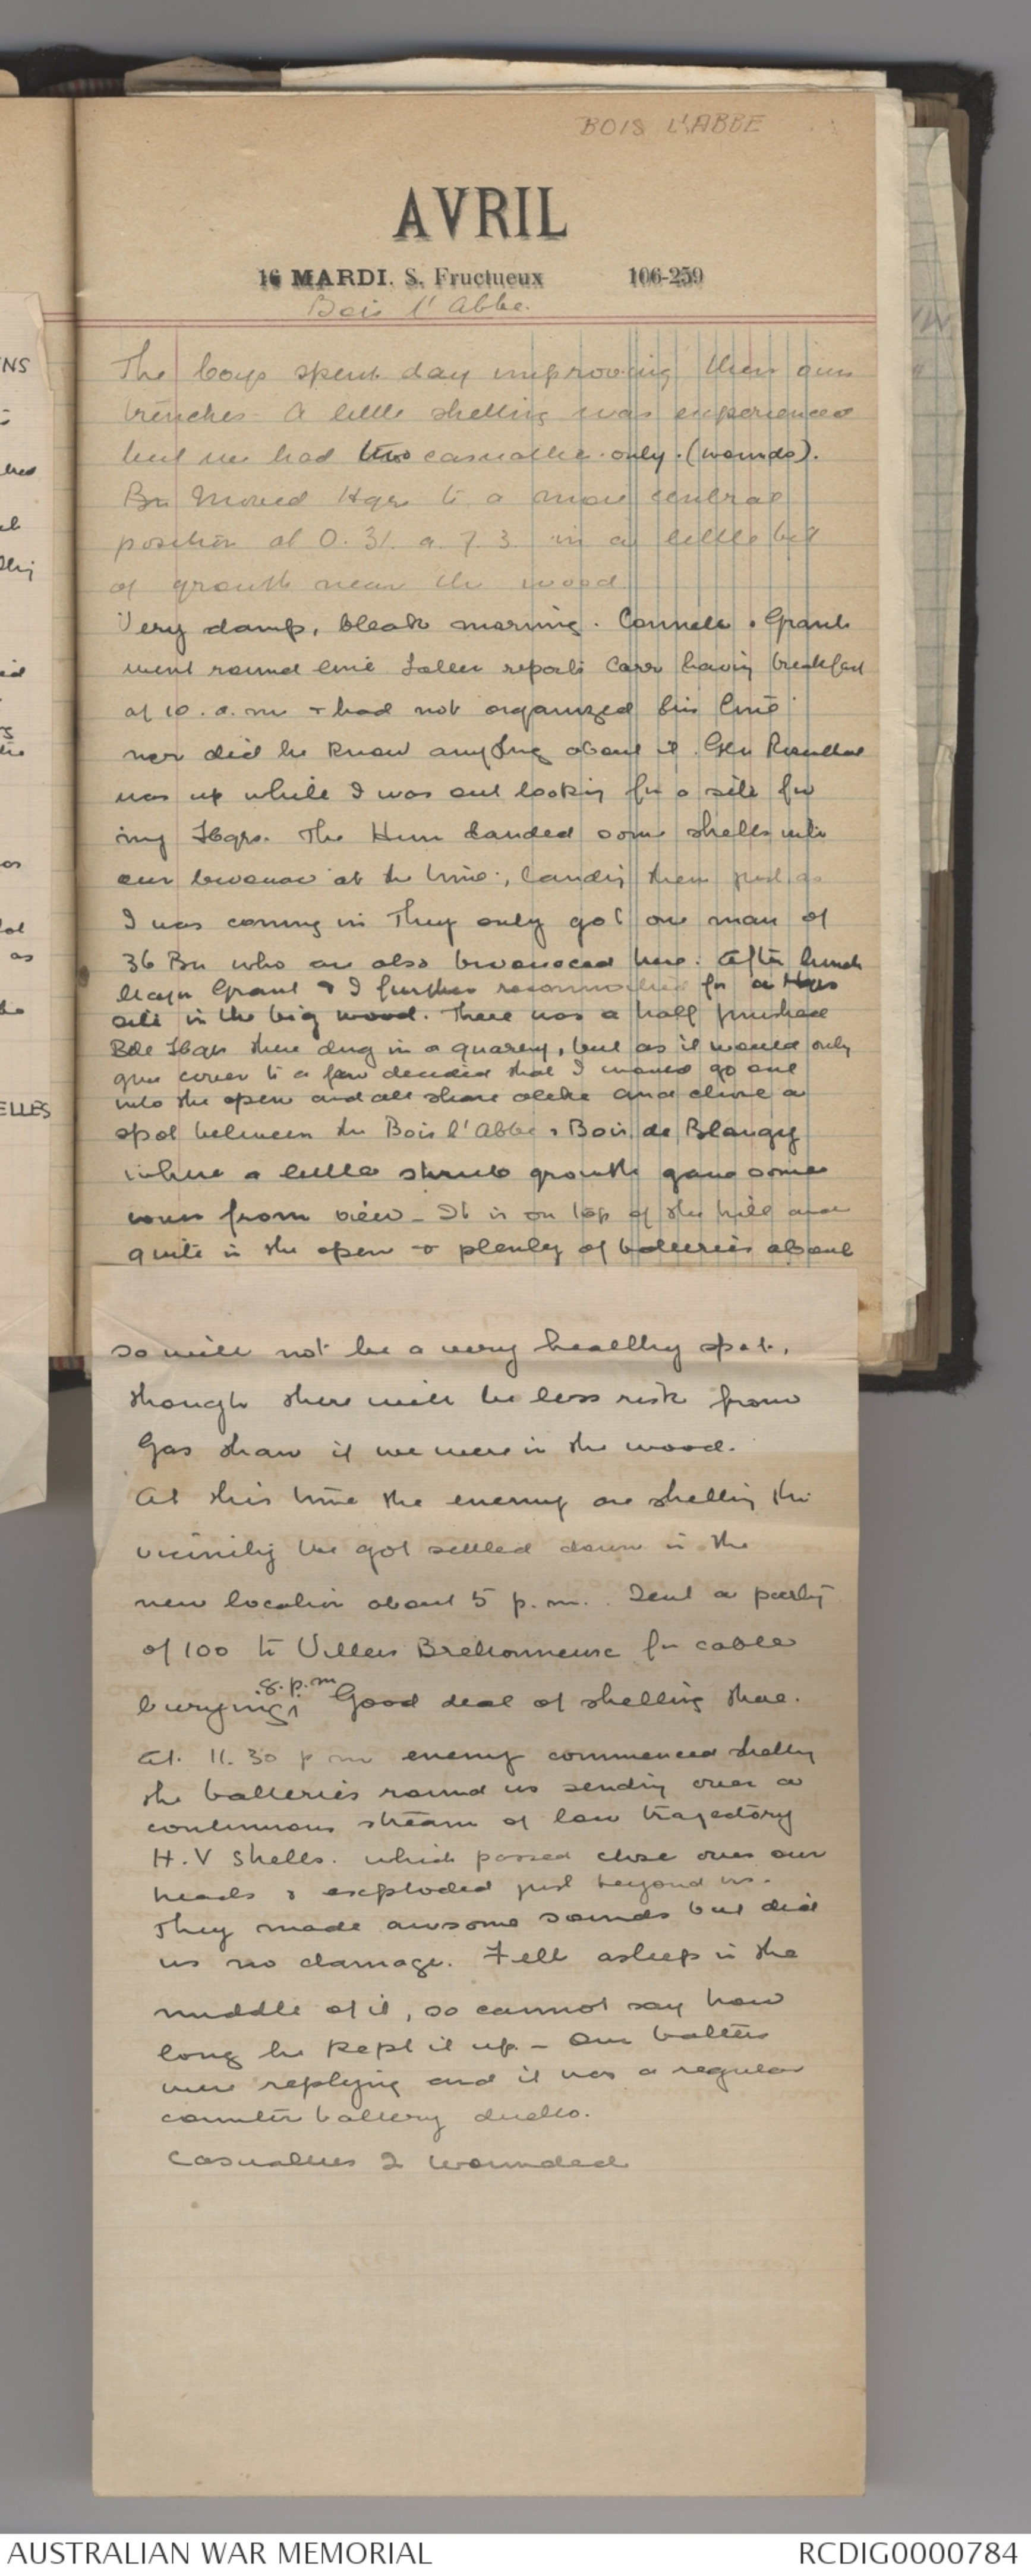 BOIS L'ABBE
AVRIL
16 MARDI. S. Fructueux 106-259
Bois l'Abbe.
The boys spent day improving their own
trenches - A little shelling was experienced
but we had two casualties only. (wounds).
Bn Moved Hqrs to a more central
position at O. 31. a. 7. 3 in a little bit
of growth near the wood
Very damp, bleak morning. Connell & Grant
went round line latter reports Carr having breakfast
at 10. a.m & had not organized his line
nor did he know anything about it. Gen Rosenthal
was up while I was out looking for a site for
my Hqrs. The Hun landed some shells into
our bivouac at the time, landing them just as
I was coming in They only got one man of
36 Bn who are also bivouaced here. After lunch
Major Grant & I further reconnoitred for a Hqrs
site in the big wood. There was a half finished
Bde Hqrs there dug in a quarry, but as it would only
give cover to a few decided that I would go out
into the open and all share alike and chose a
spot between the Bois l'Abbe & Bois de Blangy
where a little shrub growth gave some
cover from view - It is on top of the hill and
quite in the open & plenty of batteries about
so will not be a very healthy spot,
though there will be less risk from
Gas than if we were in the wood.
At this time the enemy are shelling the
vicinity We got settled down in the
new location about 5 p.m.. Sent a party
of 100 to Villers Bretonneux for cable
burying 8.p.m Good deal of shelling there.
At. 11.30 p m enemy commenced shelling
the batteries round us sending over a
continuous stream of low trajectory
H.V Shells. which passed close over our
heads & exploded just beyond us.
They made awsome sounds but did
us no damage. Fell asleep in the
middle of it, so cannot say how
long he kept it up - Our batteries
were replying and it was a regular
counter battery duello.
Casualties 2 wounded
NS
ELLES
as
AUSTRALIAN WAR MEMORIAL
RCDIG0000784